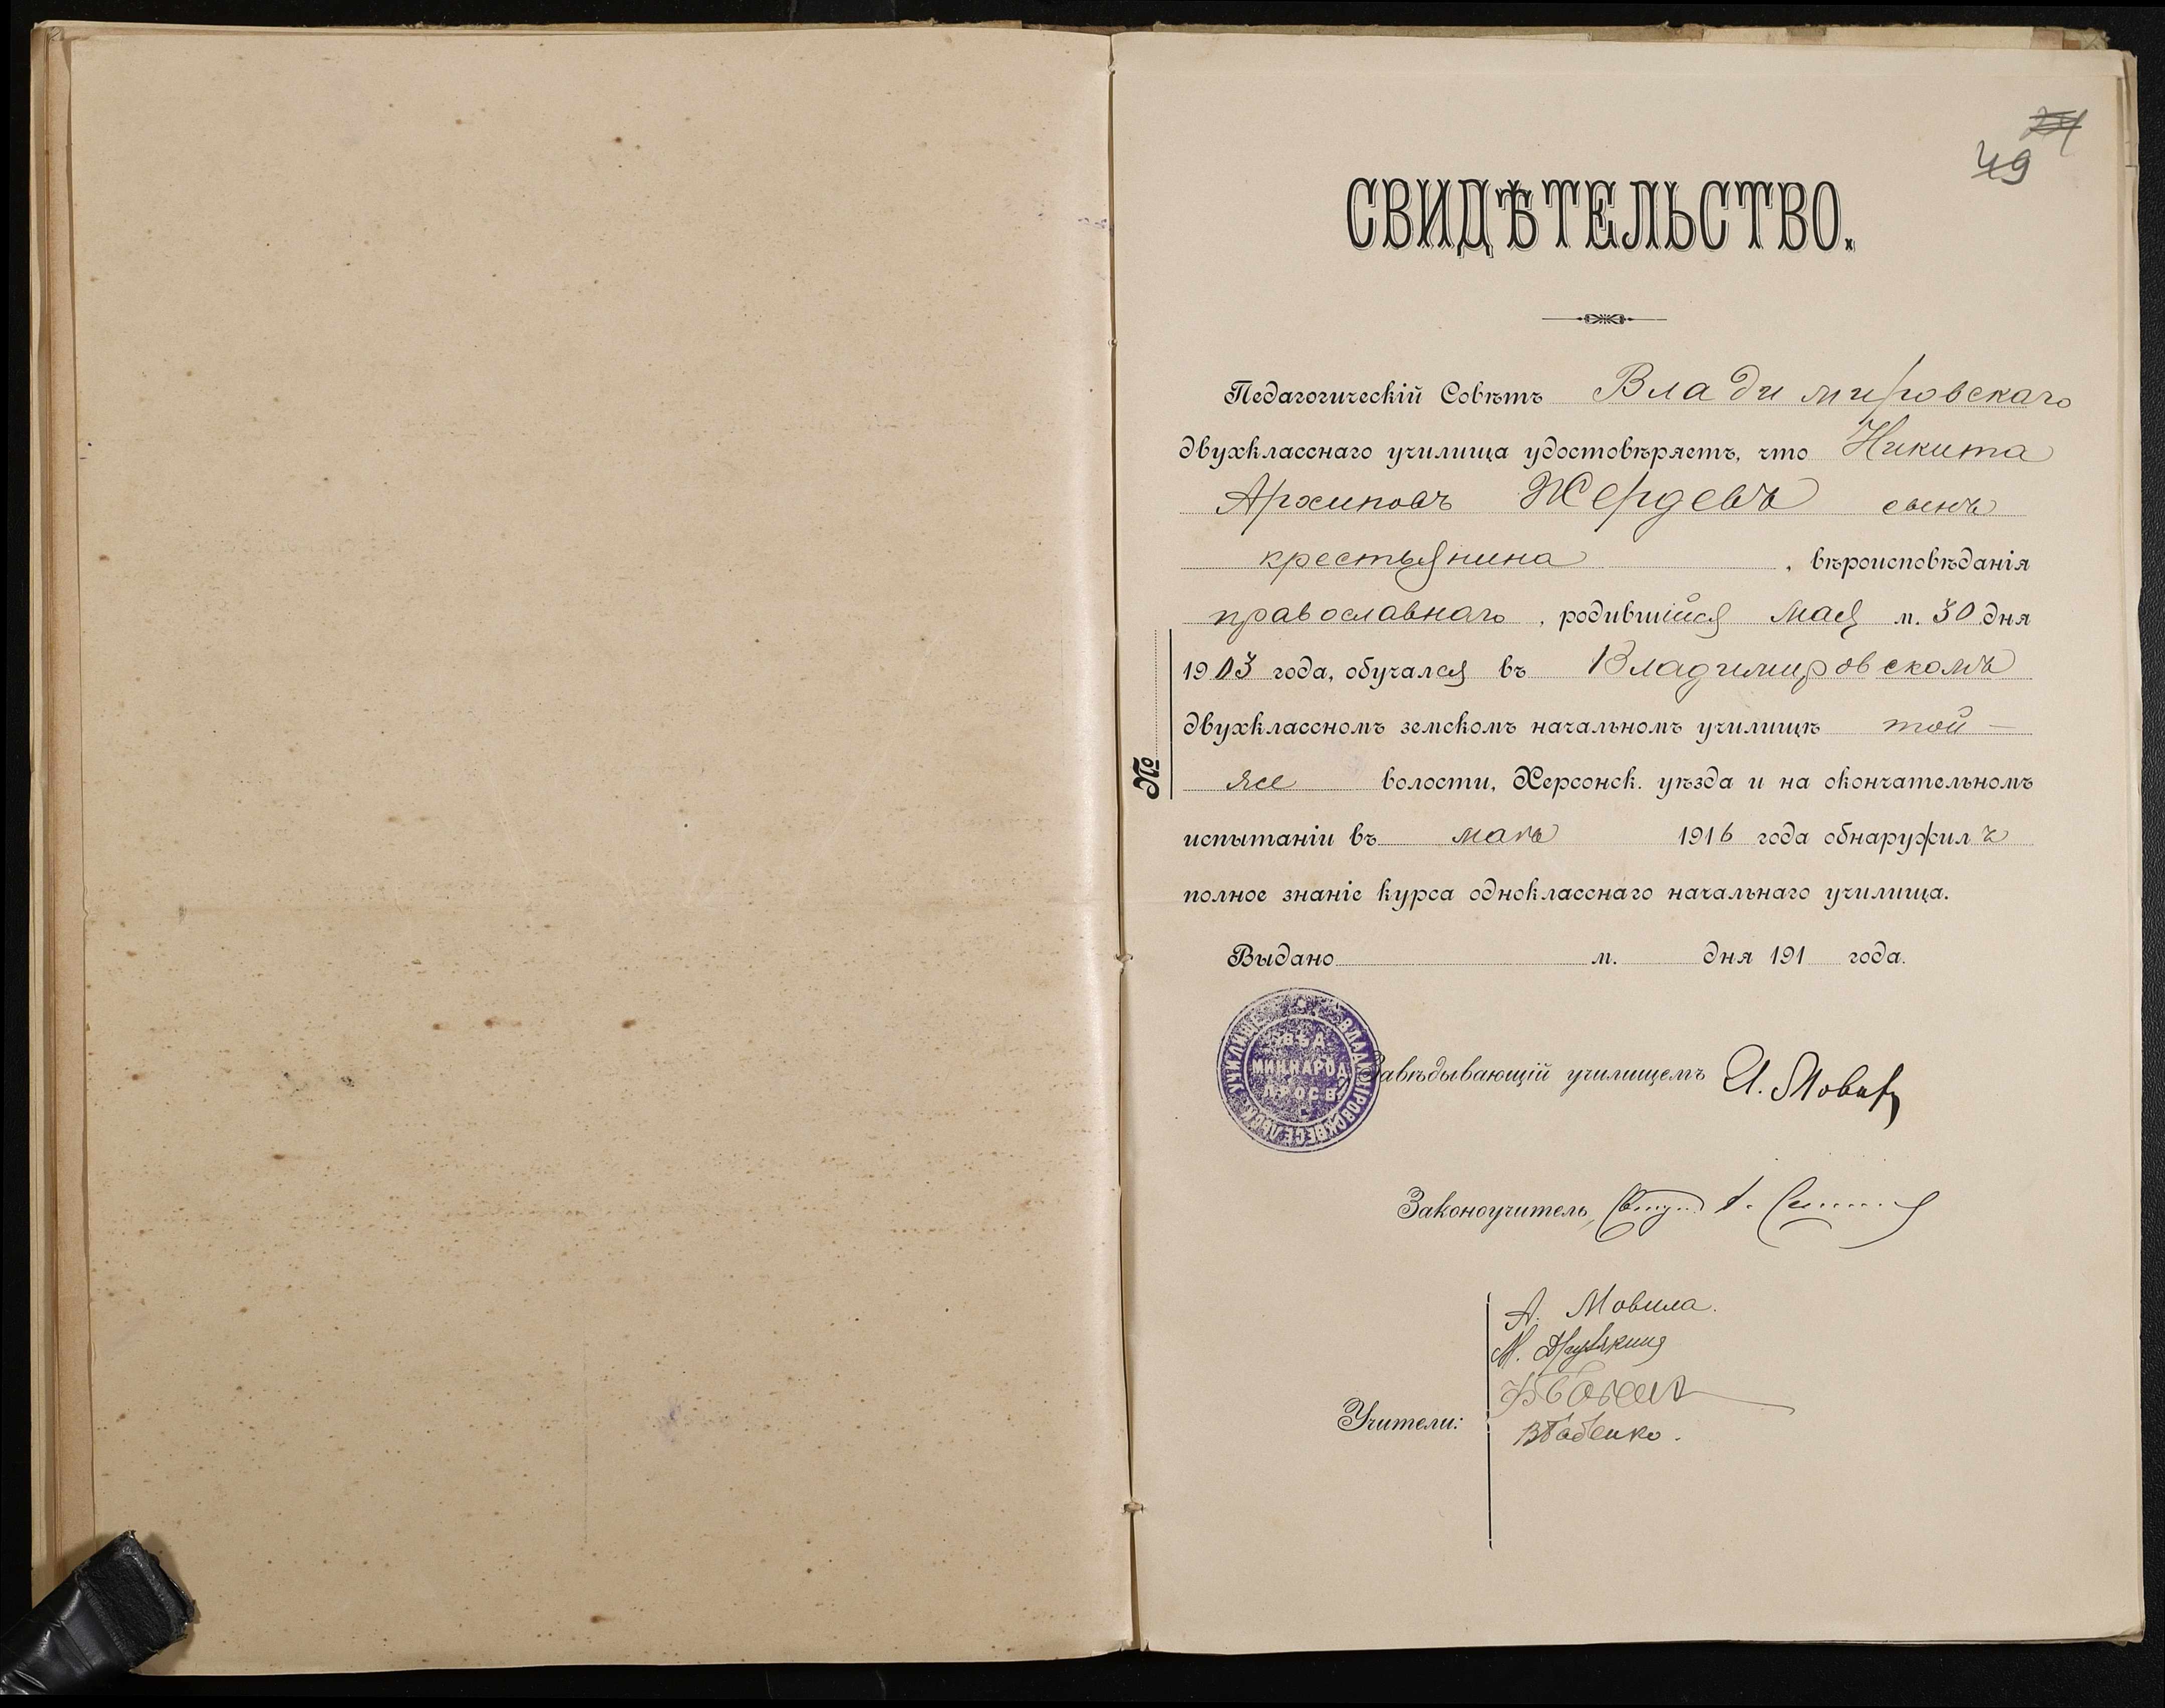 24
49
СВИДѢТЕЛЬСТВО.
Педагогическій Совѣтъ Владимировскаго
двухкласснаго училища удостовѣряетъ, что Никита
Архиповъ Жердевъ сынъ
крестьянина, вѣроисповѣданія
православнаго, родившійся мая м. 30 дня
1903 года, обучался въ Владимировскомъ
двухклассномъ земскомъ начальномъ училищѣ той-
же волости, Херсонск. уѣзда и на окончательномъ
испытаніи въ маѣ 1916 года обнаружилъ
полное знаніе курса однокласснаго начальнаго училища.
№
Выдано м. дня 191 года.
ВѢД.
МИН.НАРОД.
ПРОСВ.
Завѣдывающій училищемъ И.
Законоучитель,
А. Мовила.
М.
Учители: